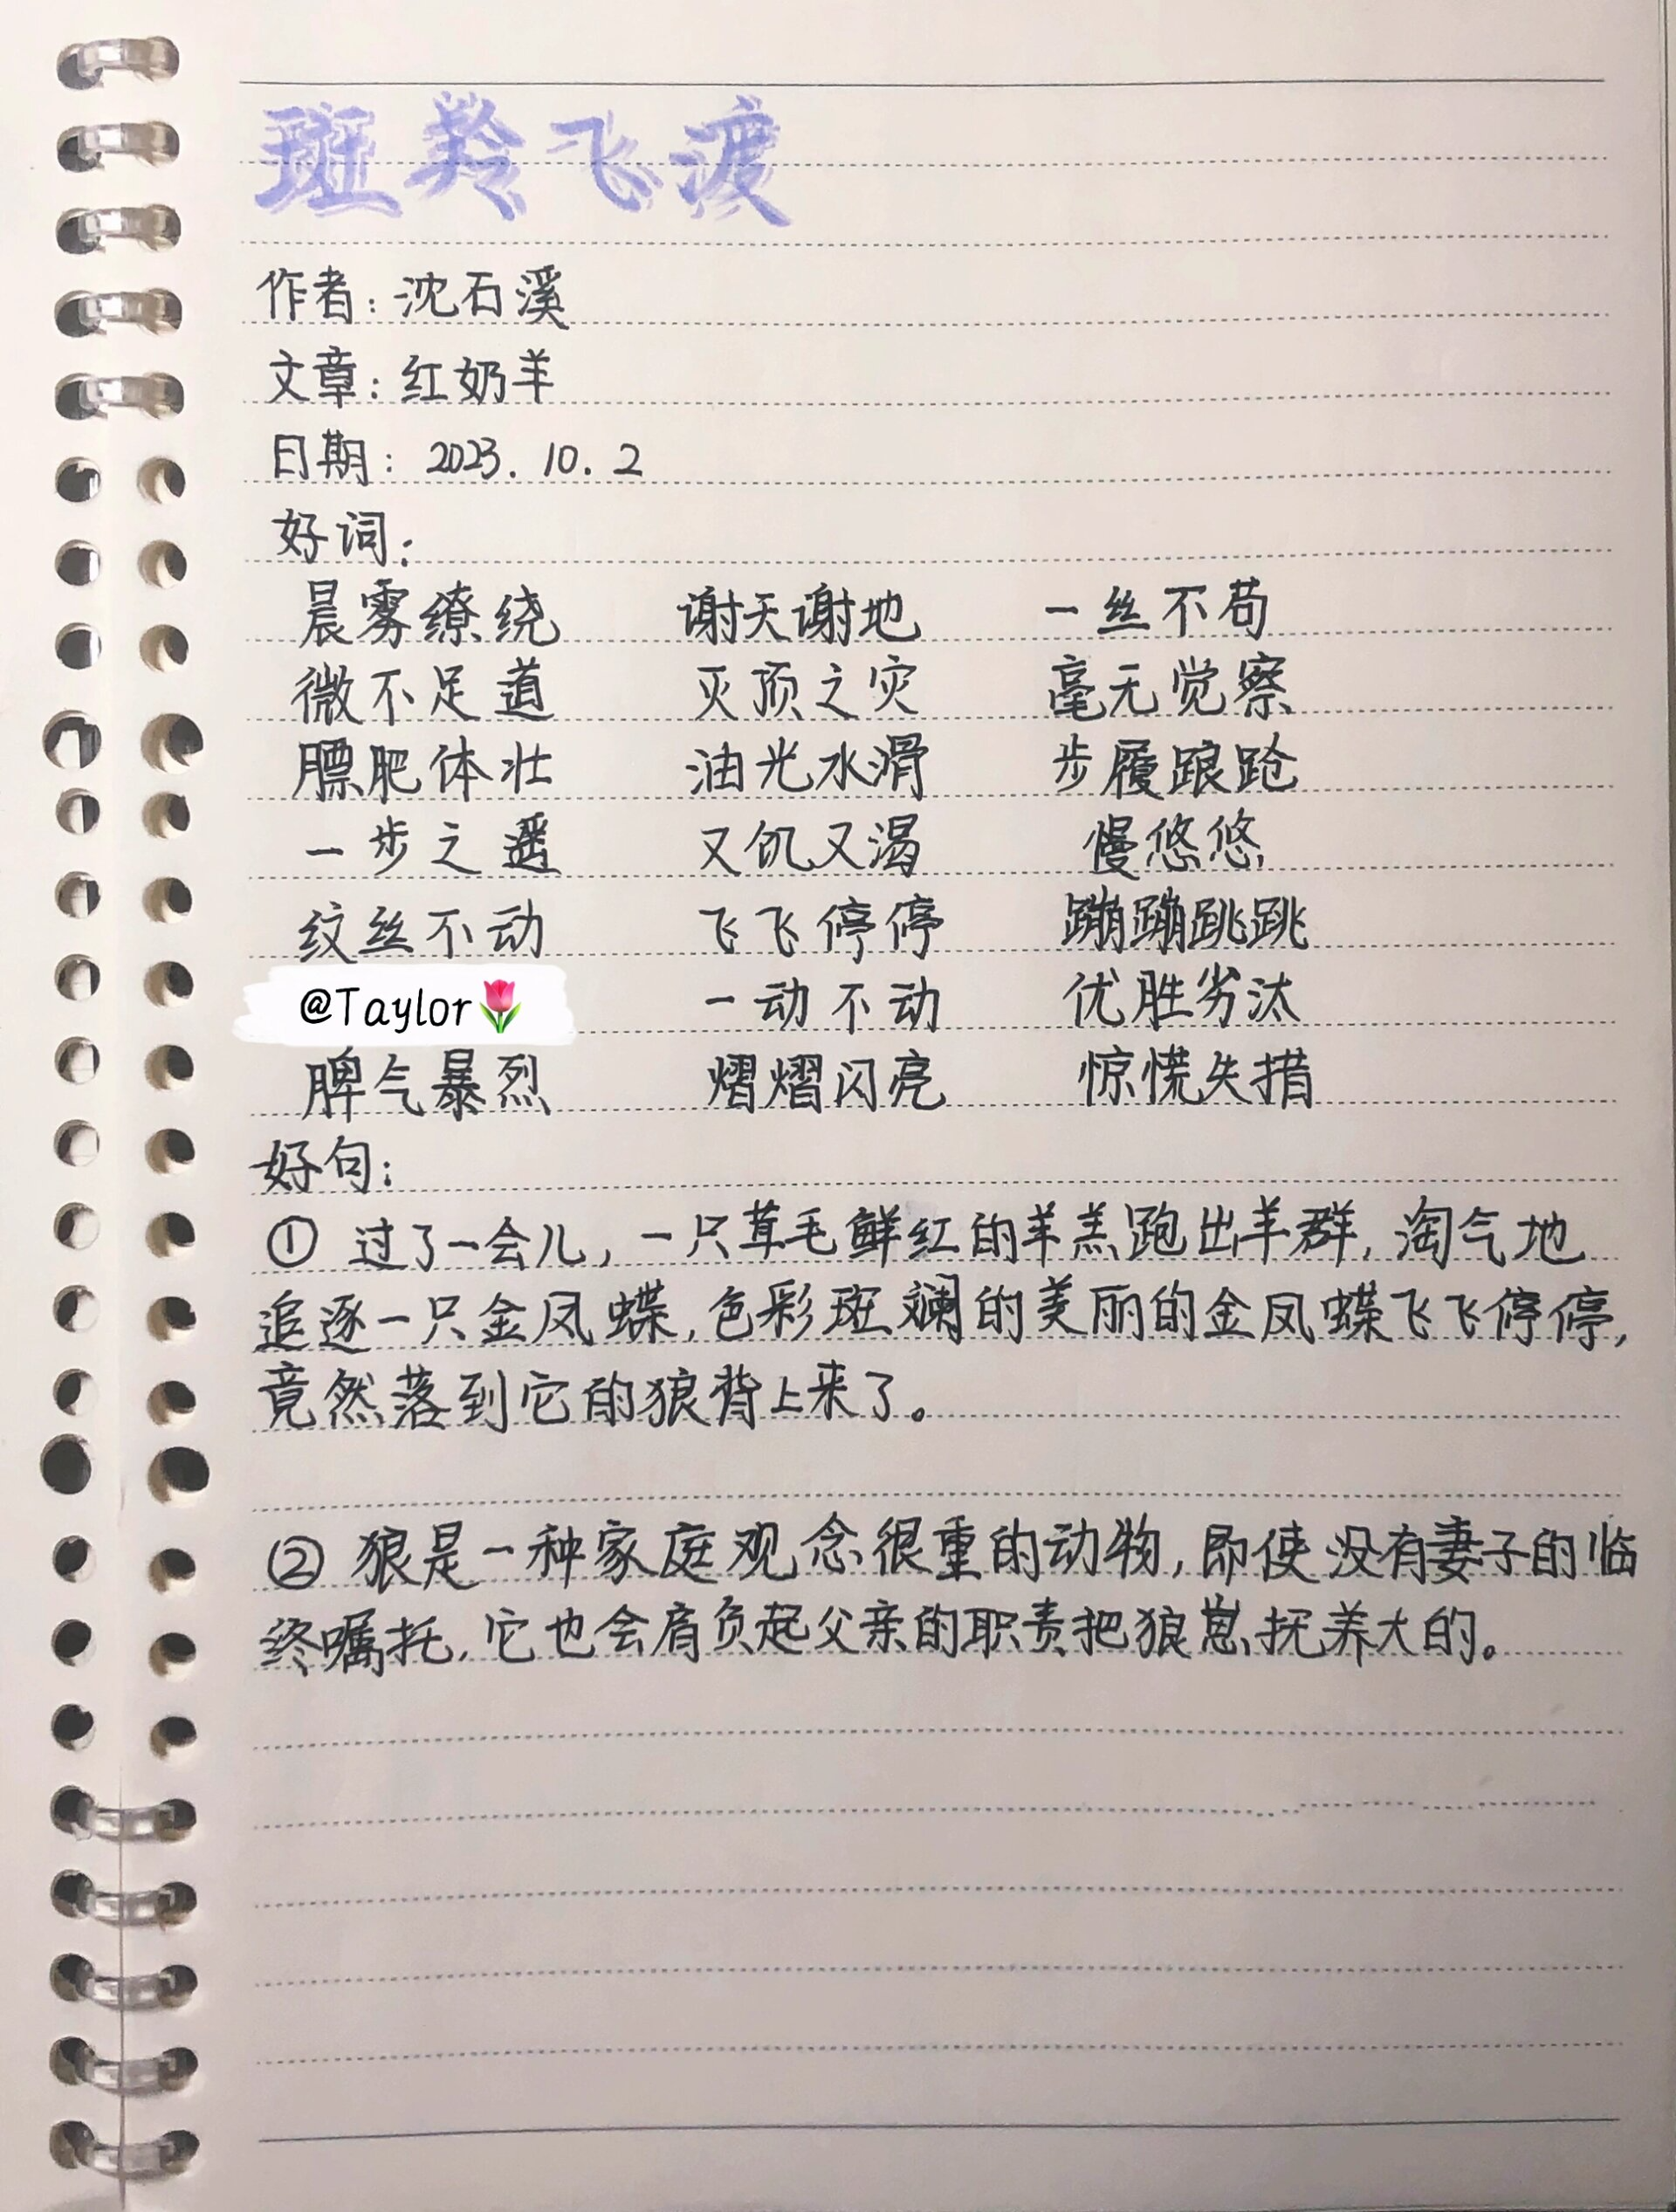 斑羚飞渡
作者：沈石溪
文章：红奶羊
日期：2023.10.2
好词：
晨雾缭绕 谢天谢地 一丝不苟
微不足道 灭顶之灾 毫无觉察
膘肥体壮 油光水滑 步履踉跄
一步之遥 又饥又渴 慢悠悠
纹丝不动 飞飞停停 蹦蹦跳跳
@Taylor🌷 一动不动 优胜劣汰
脾气暴烈 熠熠闪亮 惊慌失措
好句：
① 过了一会儿，一只茸毛鲜红的羊羔跑出羊群，淘气地
追逐一只金凤蝶，色彩斑斓的美丽的金凤蝶飞飞停停，
竟然落到它的狼背上来了。
② 狼是一种家庭观念很重的动物，即使没有妻子的临
终嘱托，它也会肩负起父亲的职责把狼崽抚养大的。